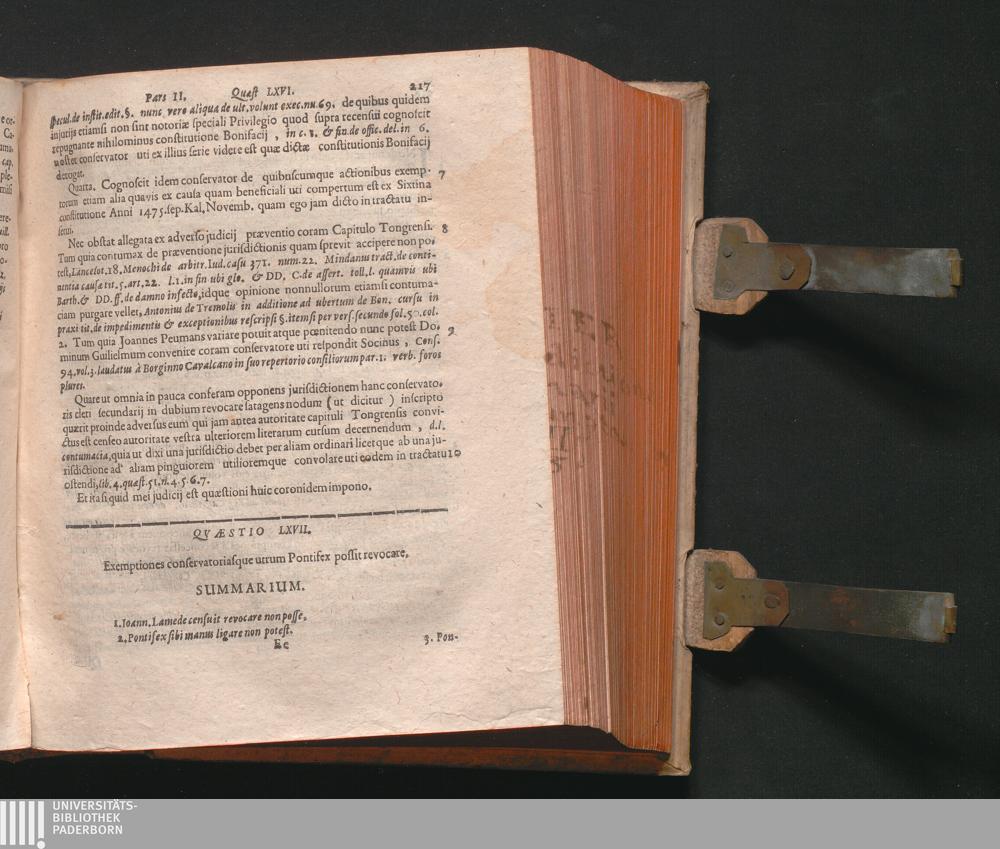 Pars II. Quæst LXVI. 217
specul.de instit.edit.§. nunc vero aliqua de ult.volunt exec.nu.69. de quibus quidem
injurijs etiamsi non sint notoriæ speciali Privilegio quod supra recensui cognoscit
repugnante nihilominus constitutione Bonifacij , in c. 1. & fin.de offic.del.in 6.
noster conservator uti ex illius serie videre est quæ dictæ constitutionis Bonifacij
derogat.
Quarta. Cognoscit idem conservator de quibuscumque actionibus exemp- 7
torum etiam alia quavis ex causa quam beneficiali uti compertum est ex Sixtina
constitutione Anni 1475.sep.Kal,Novemb. quam ego jam dicto in tractatu in-
serui.
Nec obstat allegata ex adverso judicij præventio coram Capitulo Tongrensi. 8
Tum quia contumax de præventione jurisdictionis quam sprevit accipere non po-
test,Lancelot.18.Menochi de arbitr.Iud.casu 371. num.22. Mindanus tract.de conti-
nentia causæ tit.5.art.22. l.1.in fin ubi glo. & DD, C.de assert. toll.l. quamvis ubi
Barth.& DD.ff.de damno infecto,idque opinione nonnullorum etiamsi contuma-
ciam purgare vellet, Antonius de Tremolis in additione ad ubertum de Bon. cursu in
praxi tit.de impedimentis & exceptionibus rescripsi §.item si per vers.secundo fol.50.col.
2. Tum quia Joannes Peumans variare potuit atque pœnitendo nunc potest Do- 9
minum Guilielmum convenire coram conservatore uti respondit Socinus , Cons.
94.vol.3.laudatus à Borginno Cavalcano in suo repertorio consiliorum par.1. verb. foros
plures.
Quare ut omnia in pauca conferam opponens jurisdictionem hanc conservato-
ris cleri secundarij in dubium revocare satagens nodum (ut dicitur ) inscripto
quærit proinde adversus eum qui jam antea autoritate capituli Tongrensis convi-
ctus est censeo autoritate vestra ulteriorem literarum cursum decernendum , d.l.
contumacia,quia ut dixi una jurisdictio debet per aliam ordinari licetque ab una ju-
risdictione ad aliam pinguiorem utilioremque convolare uti eodem in tractatu 10
ostendi,lib.4.quæst.51.n.4.5.6.7.
Et ita si quid mei judicij est quæstioni huic coronidem impono.
QVÆSTIO LXVII.
Exemptiones conservatoriasque utrum Pontifex possit revocare.
SUMMARIUM.
1.Ioann.Lamede censuit revocare non posse.
2.Pontifex sibi manus ligare non potest.
Ee 3. Pon-
UNIVERSITÄTS-
BIBLIOTHEK
PADERBORN